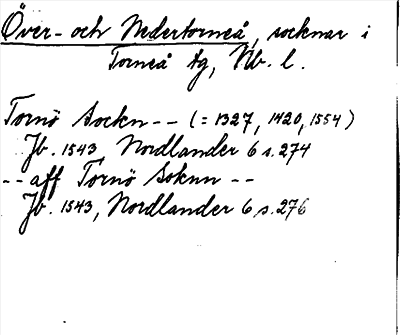 Över- och Nedertorneå, socknar i
Torneå tg, Nb. l.
Tornö Sockn -- (= 1327, 1420, 1554)
Jb. 1543 Nordlander 6 s. 274
-- aff Tornö Soknn --
Jb. 1543, Nordlander 6 s. 276